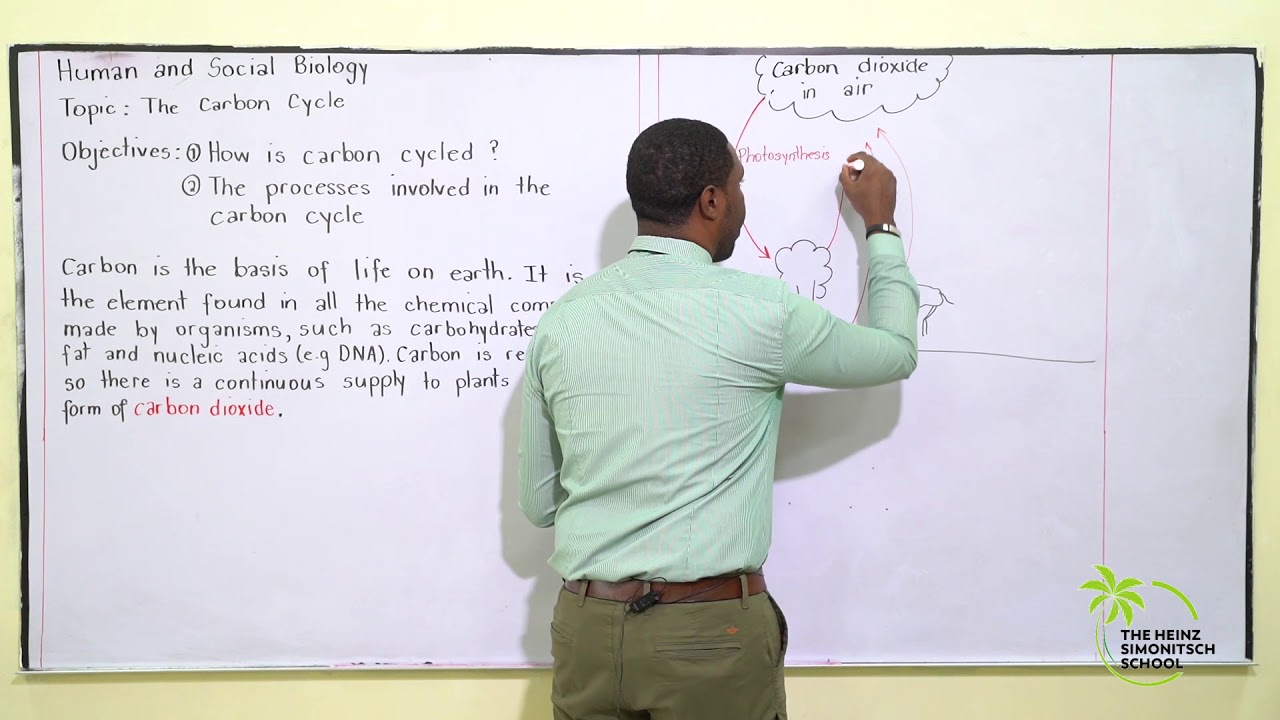 Human and Social Biology
Topic: The Carbon Cycle
Objectives: ① How is carbon cycled?
② The processes involved in the
carbon cycle
Carbon is the basis of life on earth. It is
the element found in all the chemical
made by organisms, such as
fat and nucleic acids (e.g DNA). Carbon is
so there is a continuous supply to plants
form of carbon dioxide.
Carbon dioxide
in air
Photosynthesis
THE HEINZ
SIMONITSCH
SCHOOL